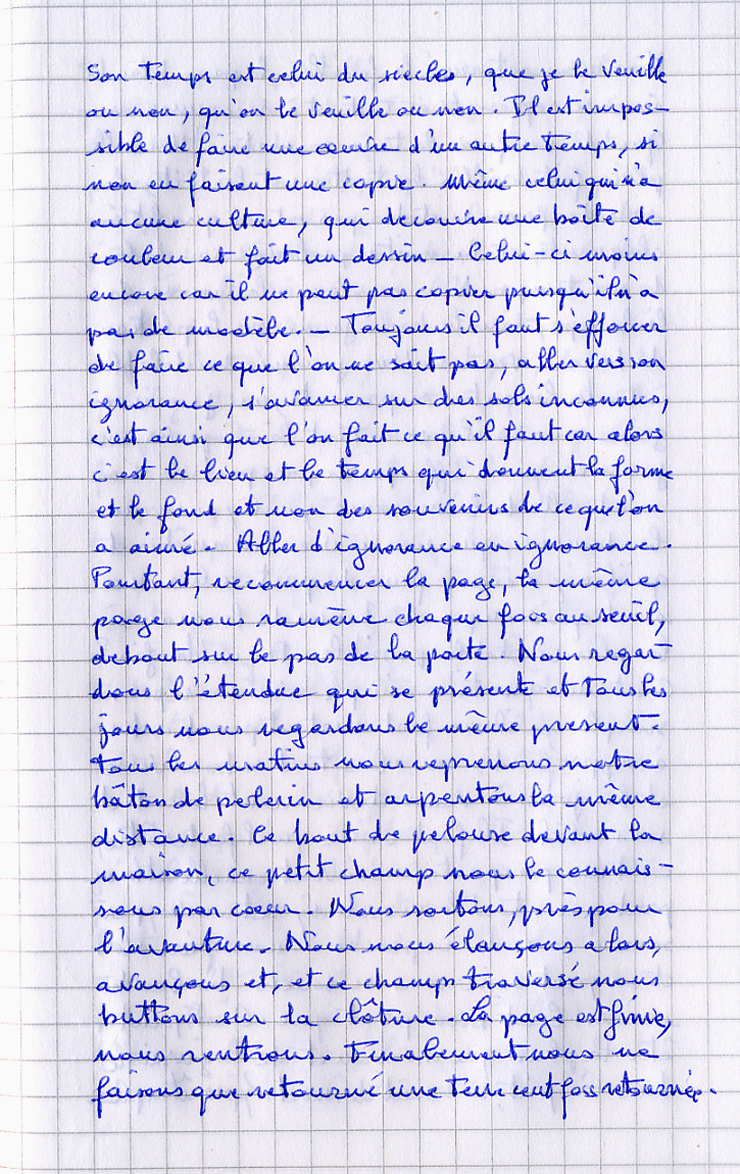 Son temps est celui du siecles, que je le veuille
ou non, qu'on le veuille ou non. Il est impos-
sible de faire une oeuvre d'un autre temps, si
non en faisant une copie. Même celui qui n'a
aucune culture, qui decouvre une boîte de
couleur et fait un dessin - Celui-ci moins
encore car il ne peut pas copier puisqu'il n'a
pas de modèle. - Toujours il faut s'efforcer
de faire ce que l'on ne sait pas, aller vers son
ignorance, s'avancer sur des sols inconnus,
c'est ainsi que l'on fait ce qu'il faut car alors
c'est le lieu et le temps qui donnent la forme
et le fond et non des souvenirs de ce que l'on
a aimé. Aller d'ignorance en ignorance.
Pourtant, recommencer la page, la même
page nous ramène chaque fois au seuil,
debout sur le pas de la porte. Nous regar
dons l'étendue qui se présente et tous les
jours nous regardons le même present.
Tous les matins nous reprenons notre
bâton de pelerin et arpentons la même
distance. Ce bout de pelouse devant la
maison, ce petit champ nous le connais-
sons par coeur. Nous sortons, près pour
l'avanture. Nous nous élançons alors,
avançons et, et ce champ traversé nous
buttons sur la clôture. La page est finie,
nous rentrons. Finalement nous ne
faisons que retourné une terre cent fois retournée.